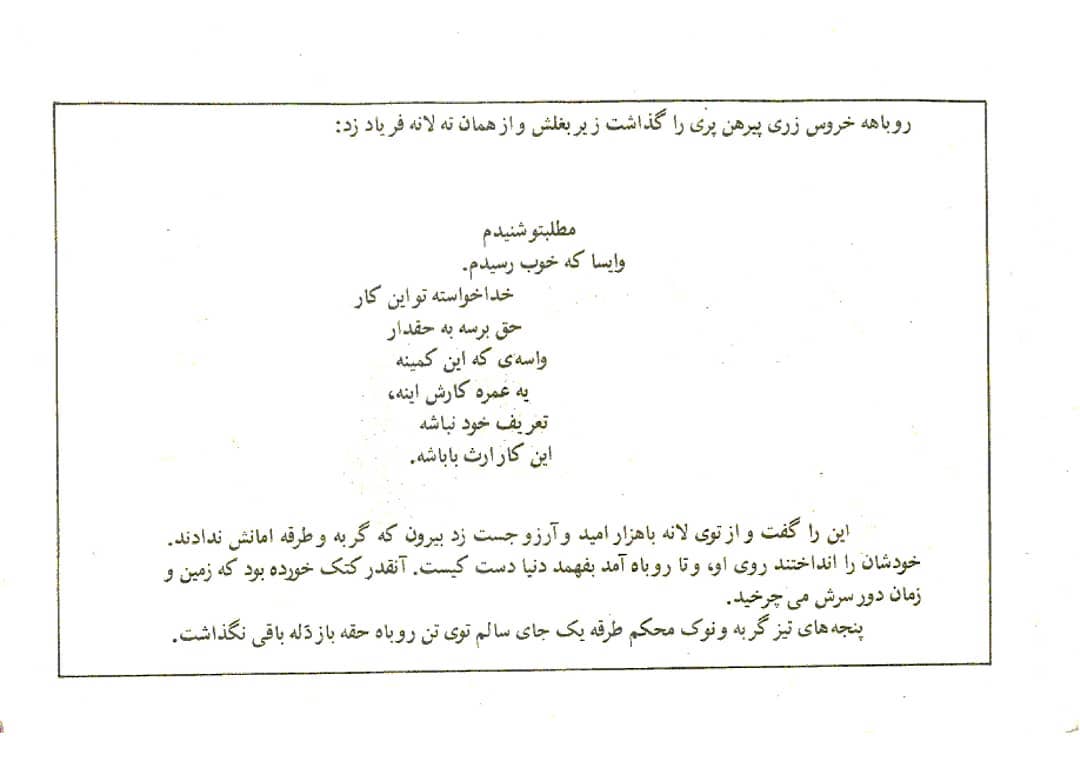 روباهه خروس زری پیرهن پری را گذاشت زیر بغلش و از همان ته لانه فریاد زد:
مطلبتو شنیدم
وایسا که خوب رسیدم.
خداخواسته تو این کار
حق برسه به حقدار
واسه‌ی که این کمینه
یه عمره کارش اینه،
تعریف خود نباشه
این کار ارث باباشه.
این را گفت و از توی لانه باهزار امید و آرزو جست زد بیرون که گربه و طرقه امانش ندادند.
خودشان را انداختند روی او، و تا روباه آمد بفهمد دنیا دست کیست. آنقدر کتک خورده بود که زمین و
زمان دور سرش می چرخید.
پنجه‌های تیز گربه و نوک محکم طرقه یک جای سالم توی تن روباه حقه باز دَله باقی نگذاشت.